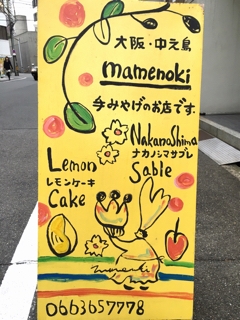 大阪・中之島
mamenoki
手みやげのお店です.
NakanoShima
ナカノシマサブレ
Sable
Lemon
レモンケーキ
Cake
mamenoki
0663657778